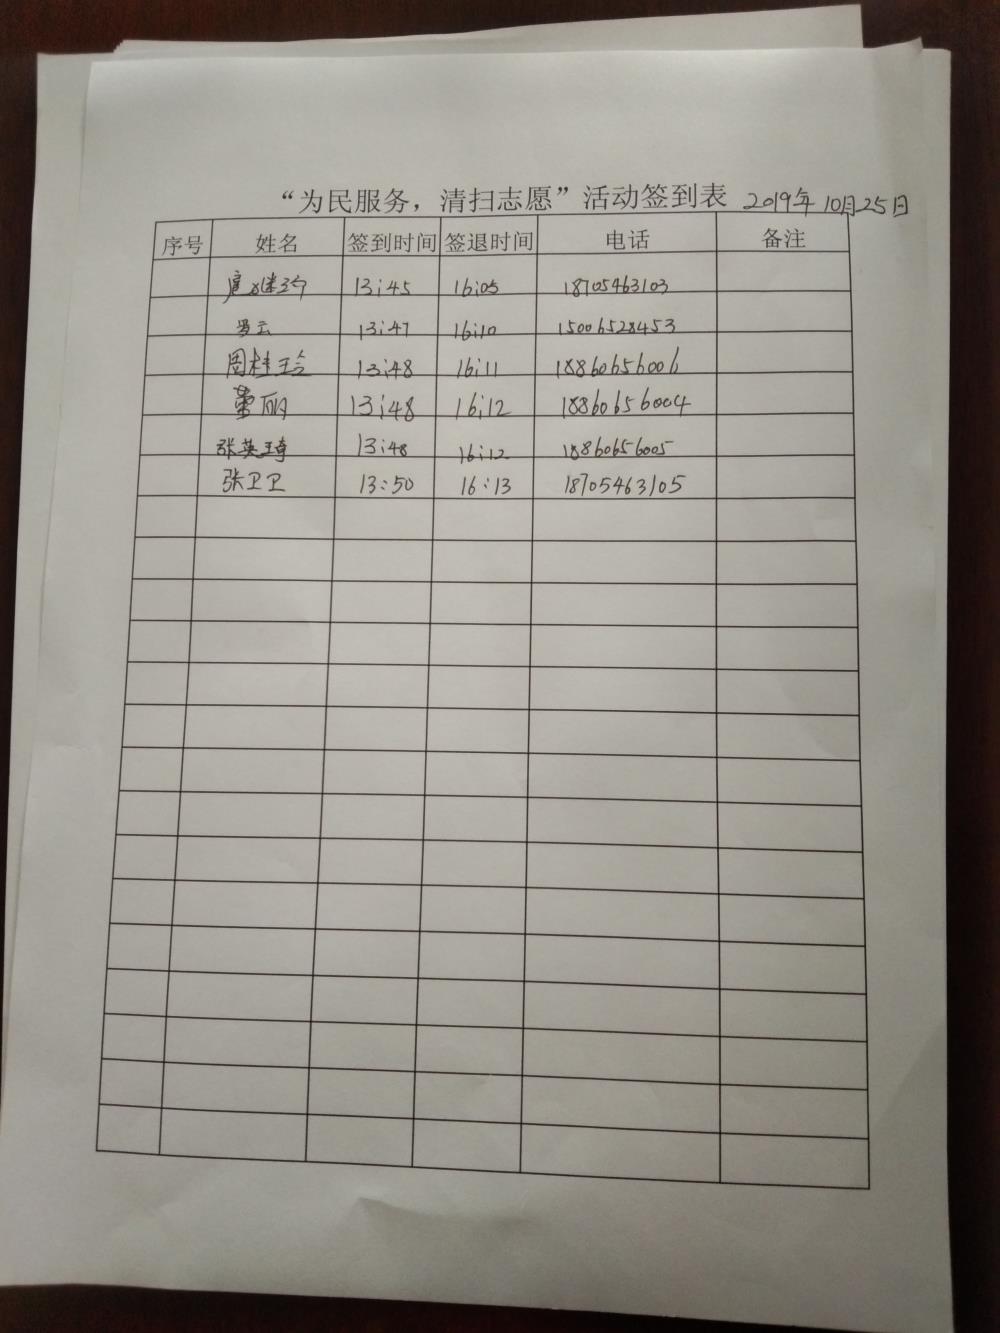 “为民服务，清扫志愿”活动签到表 2019年10月25日
序号 姓名 签到时间 签退时间 电话 备注
13:45 16:05 18705463103
罗云 13:47 16:10 15006528453
周桂玲 13:48 16:11 18860656006
董丽 13:48 16:12 18860656004
张英琦 13:48 16:12 18860656005
张卫卫 13:50 16:13 18705463105